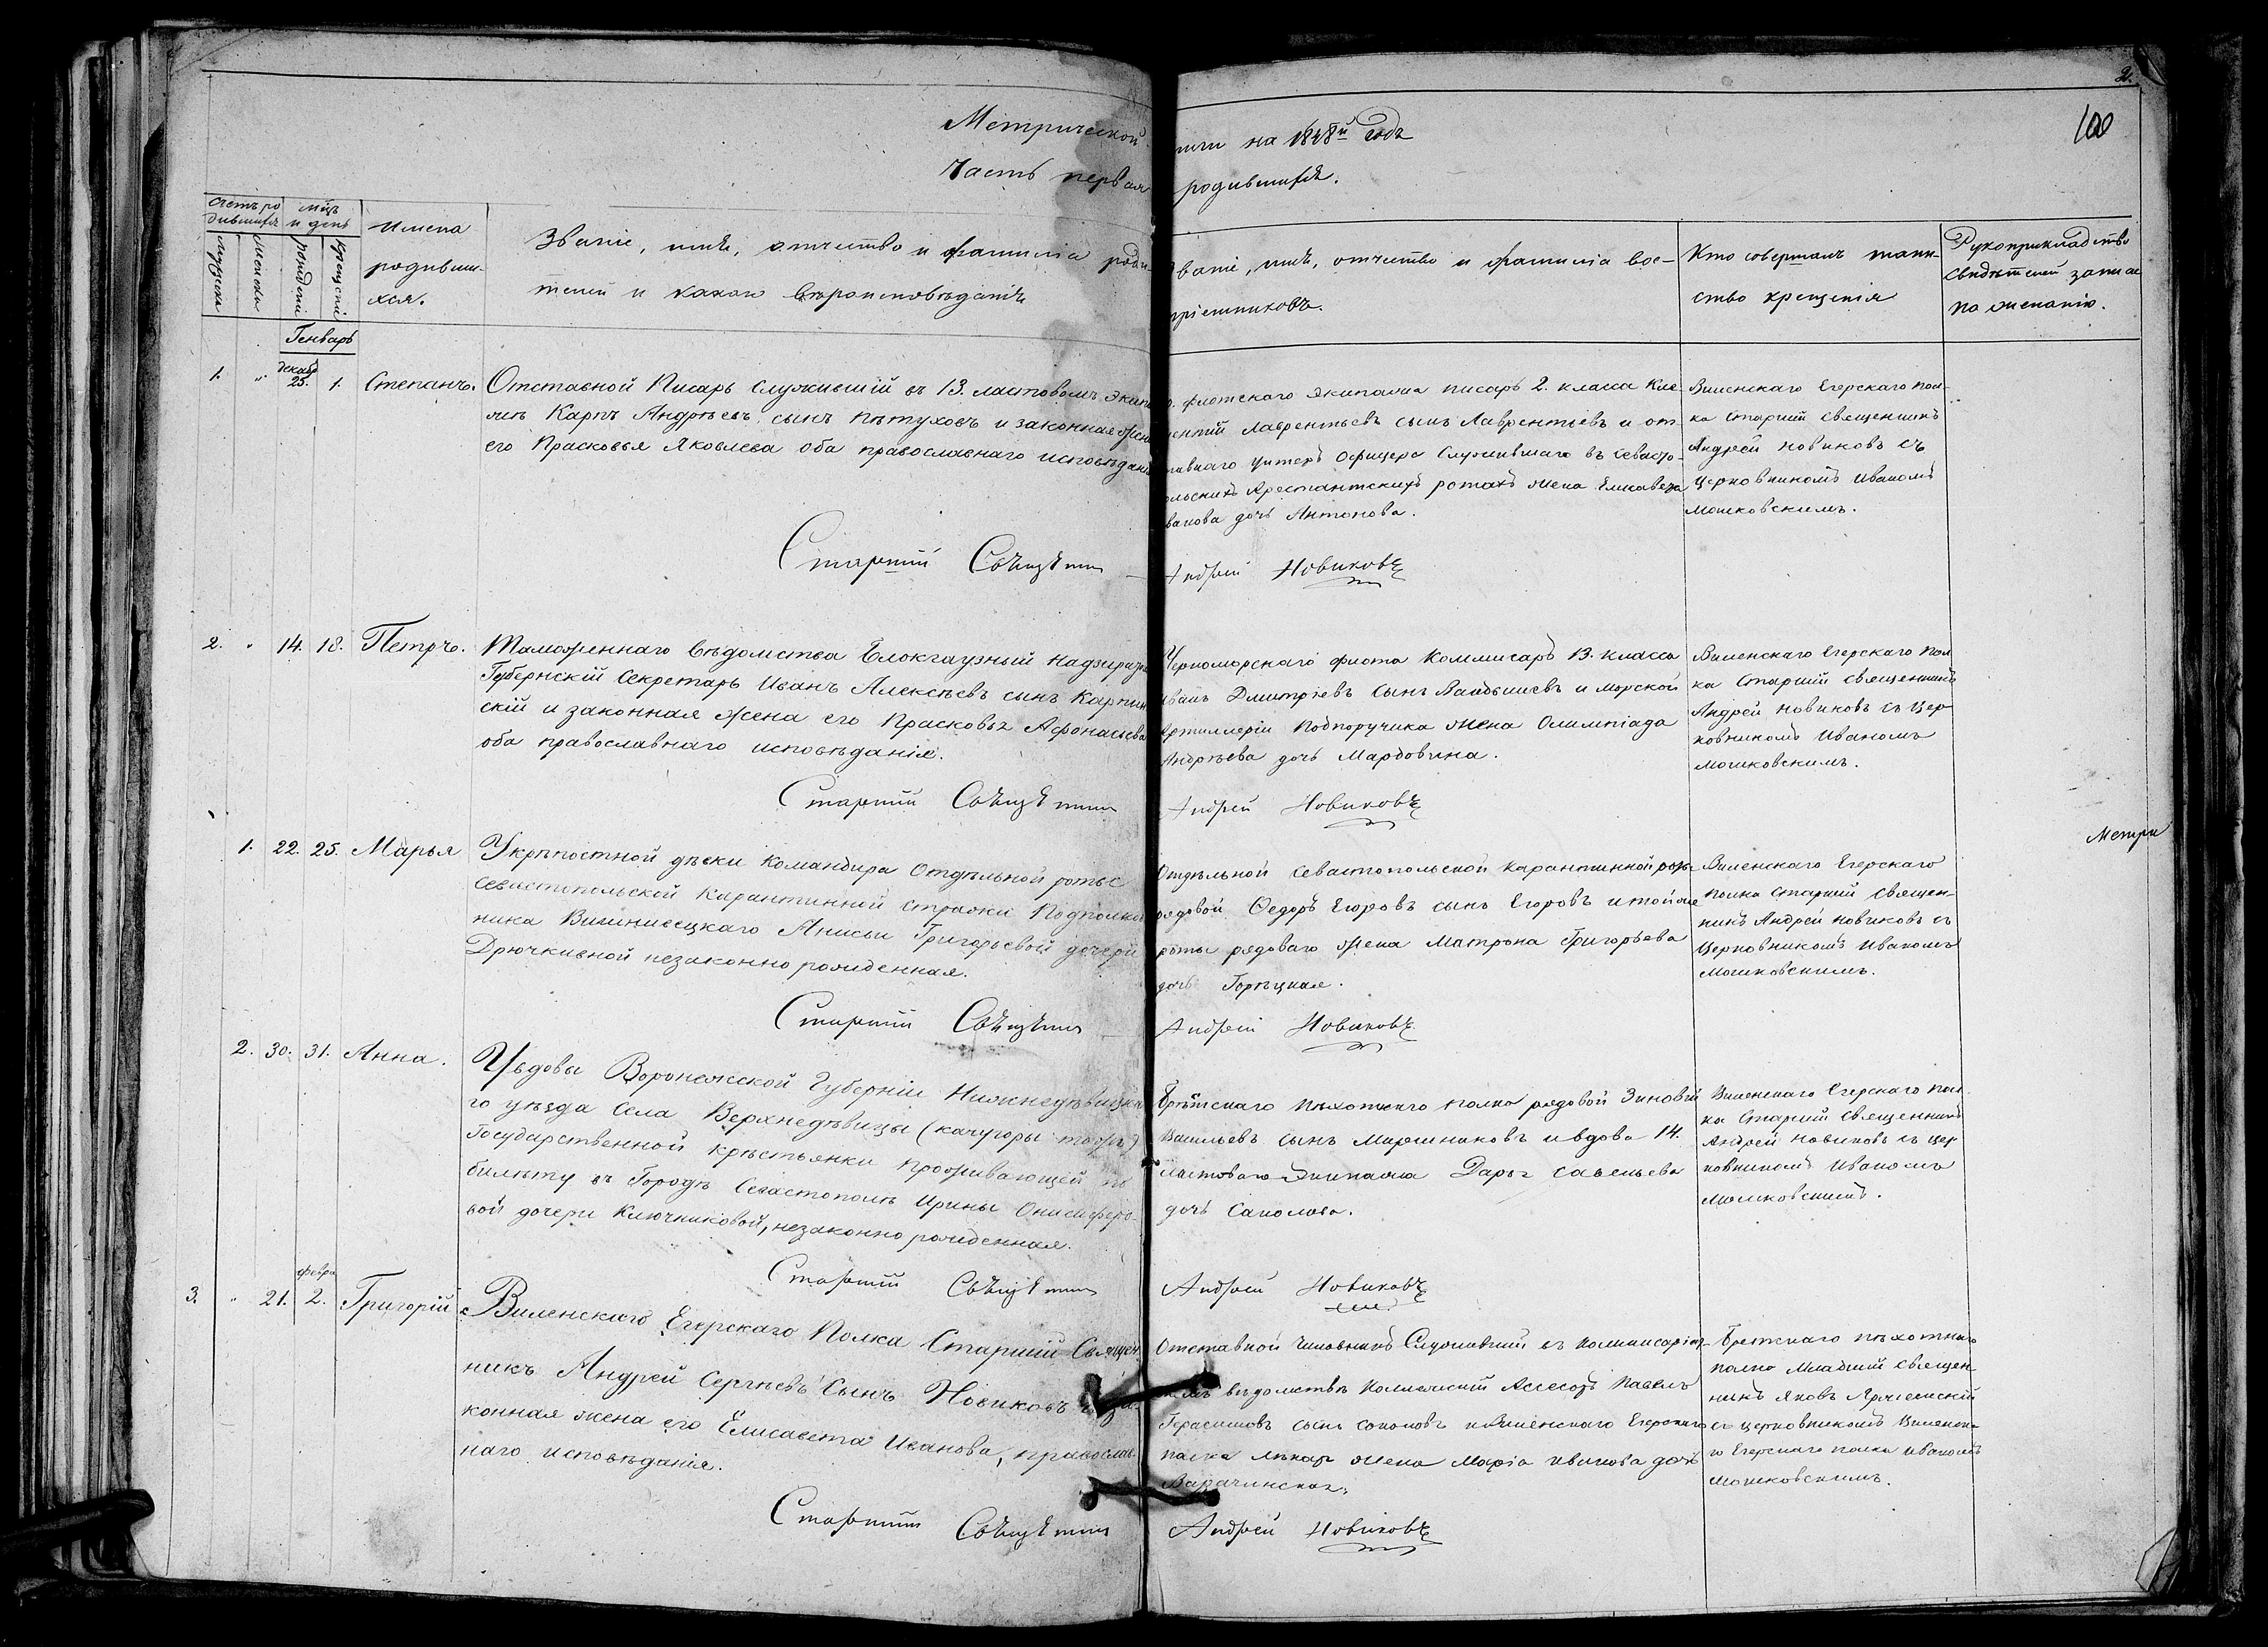 2.
100
Метрической
ниги на 1848й годъ
Часть первая
родившихся.
Счетъ ро
дившихся
мцъ
и день
мужеска
женска
рожденія
крещенія
Имена
родивши-
хся.
Званіе, имя, отчество и фамилія роди-
телей и какого вѣроисповѣданія
Званіе, имя, отчество и фамилія вос-
пріемниковъ.
Кто совершалъ таин-
ство крещенія
Рукоприкладство
свидѣтелей записи
по желанію.
Генварь
1. „ декабр 25. 1. Степанъ.
Отставной Писарь служившій въ 13. ластовомъ экип
жѣ Карпъ Андрѣевъ сынъ Пѣтуховъ и законная жена
его Прасковья Яковлева оба православнаго исповѣданія
флотскаго экипажа писарь 2. класса
Лаврентьевъ сынъ Лаврентьевъ и от
ставнаго унтеръ офицера служившаго въ Севасто-
польскихъ Арестантскихъ ротахъ жена Елисавета
Иванова дочь Антонова.
Виленскаго Егерскаго пол-
ка старшій священникъ
Андрей Новиковъ съ
церковникомъ Иваномъ
Мошковскимъ.
Старшій Священникъ
Андрей Новиковъ
2. „ 14. 18. Петръ.
Таможеннаго вѣдомства Блокгаузный надзиратель
Губернскій Секретарь Иванъ Алексѣевъ сынъ Карпин
скій и законная жена его Прасковья Афонасьева
оба православнаго исповѣданія.
Черноморскаго флота Коммисаръ 13. класса
Иванъ Дмитріевъ сынъ и морской
Артиллеріи Подпоручика жена Олимпіада
Андрѣева дочь Мардовина.
Виленскаго Егерскаго пол
ка старшій священникъ
Андрей Новиковъ съ цер
ковникомъ Иваномъ
Мошковскимъ.
Старшій Священникъ
Андрей Новиковъ
Метри
1. 22. 25. Марья
Укрѣпостной дѣвки командира Отдѣльной роты
Севастопольской Карантинной стражи Подполков
ника Вишневецкаго Анисьи Григорьевой дочери
Дрючкивной незаконно рожденная.
Отдѣльной Севастопольской карантинной роты
рядовой Федоръ Егоровъ сынъ Егоровъ и той же
роты рядоваго жена Матрона Григорьева
дочь Горѣцкая.
Виленскаго Егерскаго
полка старшій священ-
никъ Андрей Новиковъ съ
церковникомъ Иваномъ
Мошковскимъ.
Старшій Священникъ
Андрей Новиковъ
2. 30. 31. Анна.
Увдовы Воронежской Губерніи Нижнедѣвицка
го уѣзда села Верхнедѣвицы
Государственной крѣстьянки проживающей по
билѣту въ Городѣ Севастополѣ Ирины Онисифоро-
вой дочери Ключниковой, незаконно рожденная.
Брѣстскаго пѣхотнаго полка рядовой Зиновій
Васильевъ сынъ Мирошниковъ и вдова 14.
ластоваго экипажа Дарья Савельева
дочь Саполова.
Виленскаго Егерскаго пол
ка старшій священникъ
Андрей Новиковъ съ цер
ковникомъ Иваномъ
Мошковскимъ.
Старшій Священникъ
Андрей Новиковъ
3. „ 21. февра 2. Григорій
Виленскаго Егерскаго Полка Старшій Священ
никъ Андрей Сергѣевъ сынъ Новиковъ и за-
конная жена его Елисавета Иванова, православ
наго исповѣданія.
Отставной чиновникъ служившій въ коммисаріат
скомъ вѣдомствѣ Коллежскій Ассесоръ Павелъ
Герасимовъ сынъ Соколовъ и Виленскаго Егерскаго
полка лѣкаря жена Марія Иванова дочь
Варачинская.
Брестскаго пѣхотнаго
полка младшій священ-
никъ Яковъ
съ церковникомъ Виленска-
го Егерскаго полка Иваномъ
Мошковскимъ.
Старшій Священникъ
Андрей Новиковъ